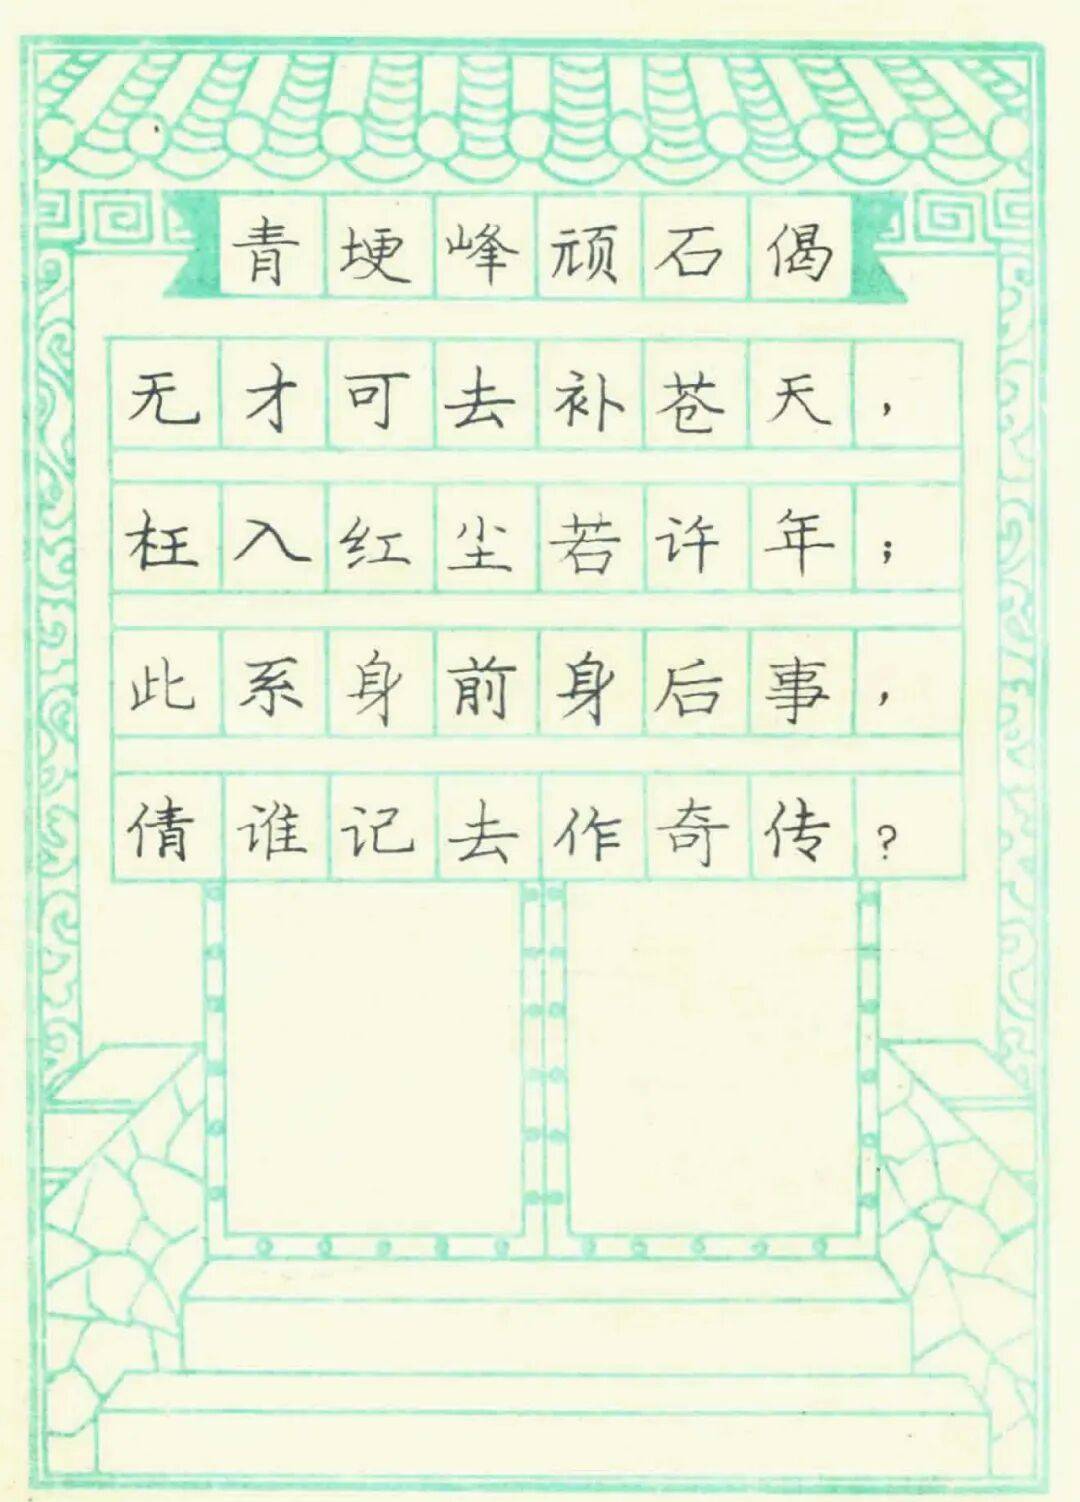 青埂峰顽石偈
无才可去补苍天，
枉入红尘若许年；
此系身前身后事，
倩谁记去作奇传？